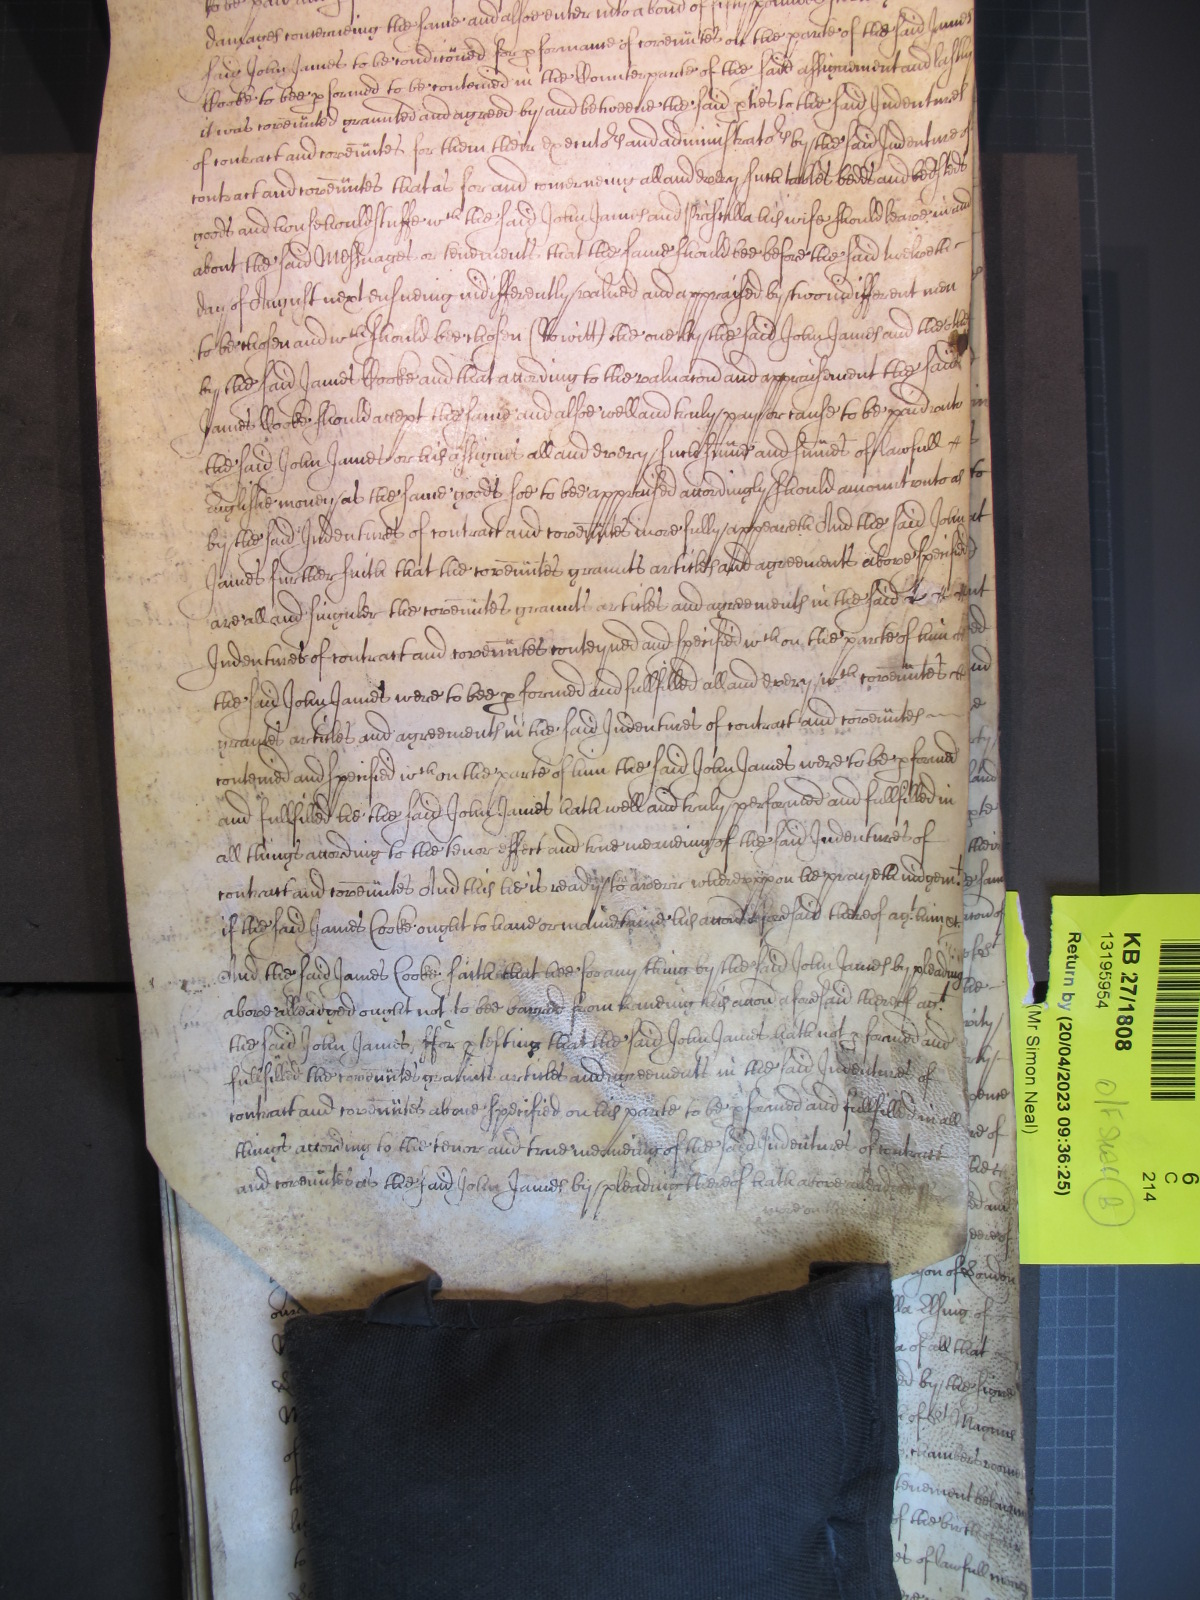 to be paid
damages concerneing the same and alsoe enter into a bond of fifty pounds
said John James to be condicõned for pformance of coveñntes on the parte of the said James
Cooke to bee pformed to be conteined in the Counterparte of the said assignement and lastly
it was coveñnted graunted and agreed by and betweene the said pties to the said Indentures
of contract and coveñntes for them their executors and administrators by the said Indentures of
contract and coveñntes that as for and concerneing all and every such tables bedds and bedsteds
goods and houshould stuffe wch the said John James and Priscilla his wife should leave in and
about the said Messuages or tenements that the same should bee before the said twelveth
day of August next ensueing indifferently valued and appraised by twoo indifferent men
to be chosen and wch should bee chosen (to witt) the one by the said John James and the other
by the said James Cooke and that according to the valuacon and appraisement the said
James Cooke should accept the same and alsoe well and truly pay or cause to be paid unto
the said John James or his assignes all and every such sume and sumes of lawfull
english money as the same goods soe to bee appraised accordingly should amount unto as
by the said Indentures of contract and coveñntes more fully appeareth And the said John
James further saith that the coveñntes graunts articles and agreements above specified
are all and singuler the coveñntes graunts articles and agreements in the said
Indentures of contract and coveñntes conteyned and specified wch on the parte of him
the said John James were to bee pformed and fullfilled all and every wch coveñntes
graunts articles and agreements in the said Indentures of contract and coveñntes
conteined and specified wch on the parte of him the said John James were to be pformed
and fullfilled hee the said John James hath well and truly performed and fullfilled in
all things according to the tenor effect and true meaneing of the said Indentures of
contract and coveñntes And this he is ready to averr whereuppon he prayeth iudgemt
if the said James Cooke ought to have or mainteine his accon aforesaid thereof agt him &c
And the said James Cooke saith that hee for any thing by the said John James by pleading
above alleadged ought not to bee barred from haveing his accon aforesaid thereof agt
the said John James ffor ptesting that the said John James hath not pformed and
fullfilled the coveñntes graunts articles and agreements in the said Indentures of
contract and coveñntes above specified on his parte to be pformed and fullfilled in all
things according to the tenor and true meaneing of the said Indentures of contract
and coveñntes as the said John James by pleading thereof hath above alleadged
KB 27/1808
13195954
Return by (20/04/2023 09:36:25)
(Mr Simon Neal)
6
C
214
of London
of
of all that
by the signe
of St Magnus
chambers
tenement
of the
of lawfull money